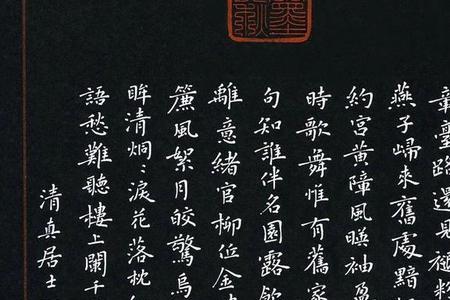 章臺路還見褪粉
燕子歸來舊處黯
約宮黃障風暎袖盈
時歌舞惟有舊家
句知誰伴名園露飲
離意緒官柳低金
簾風絮月皎驚烏
眸清炯〻淚花落枕
語愁難聽樓上闌干
清真居士